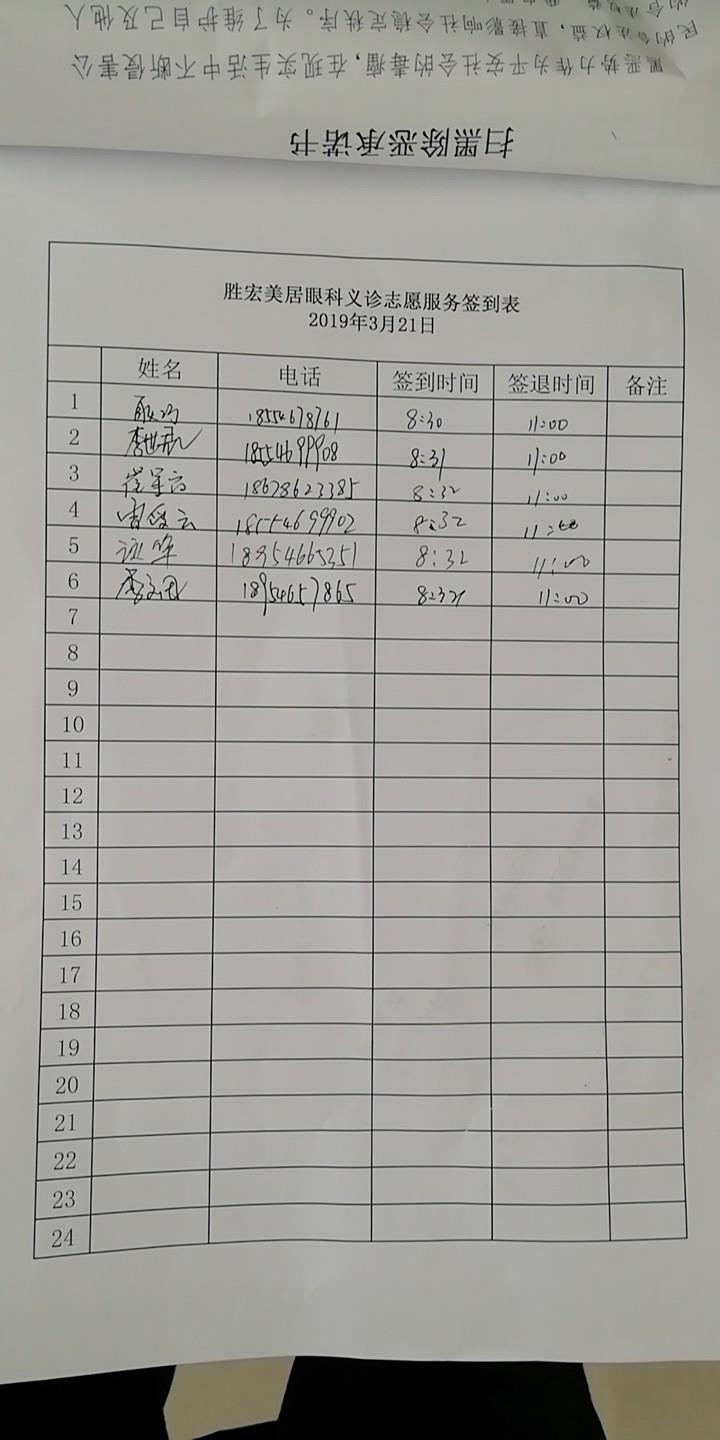 扫黑除恶承诺书
黑恶势力作为平安社会的毒瘤，在现实生活中不断侵害公
民的合法权益，直接影响社会稳定秩序。为了维护自己及他人
胜宏美居眼科义诊志愿服务签到表
2019年3月21日
姓名 电话 签到时间 签退时间 备注
1 18554678761 8:30 11:00
2 18554699908 8:31 11:00
3 18678623385 8:32 11:00
4 18554699902 8:32 11:00
5 18954665351 8:32 11:00
6 18954657865 8:32 11:00
7
8
9
10
11
12
13
14
15
16
17
18
19
20
21
22
23
24